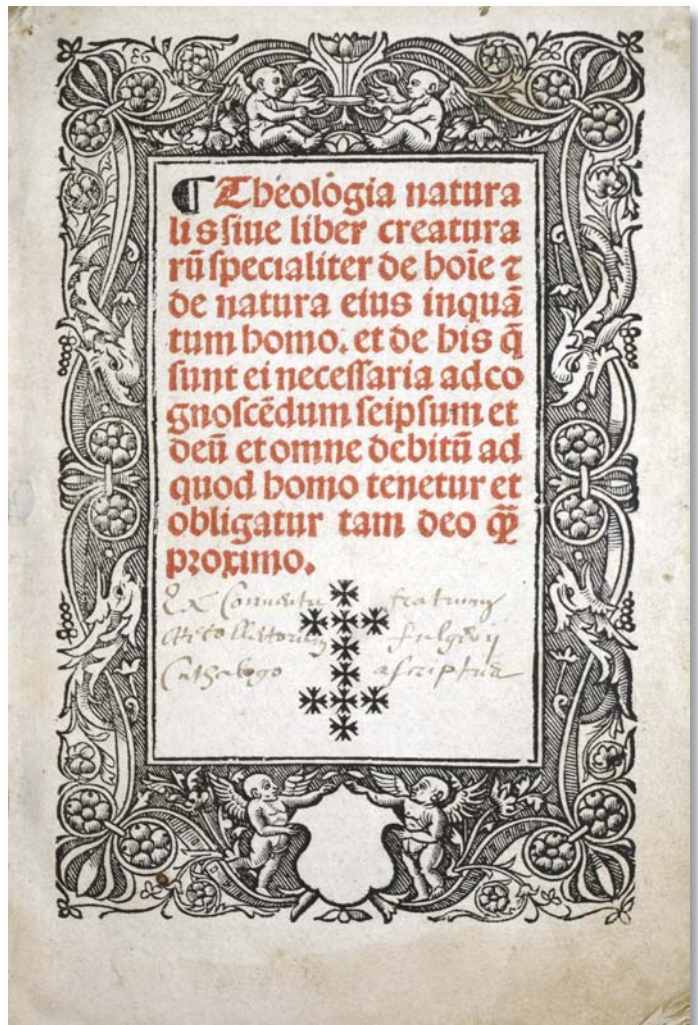 ¶ Theologia natura
lis siue liber creatura
rū specialiter de hoīe ⁊
de natura eius inquā
tum homo. et de his q̄
sunt ei necessaria ad co
gnoscēdum seipsum et
deū et omne debitū ad
quod homo tenetur et
obligatur tam deo qȝ
proximo.
Ex Conuentu fratrum
Recollectorum
Cathalogo ascriptus